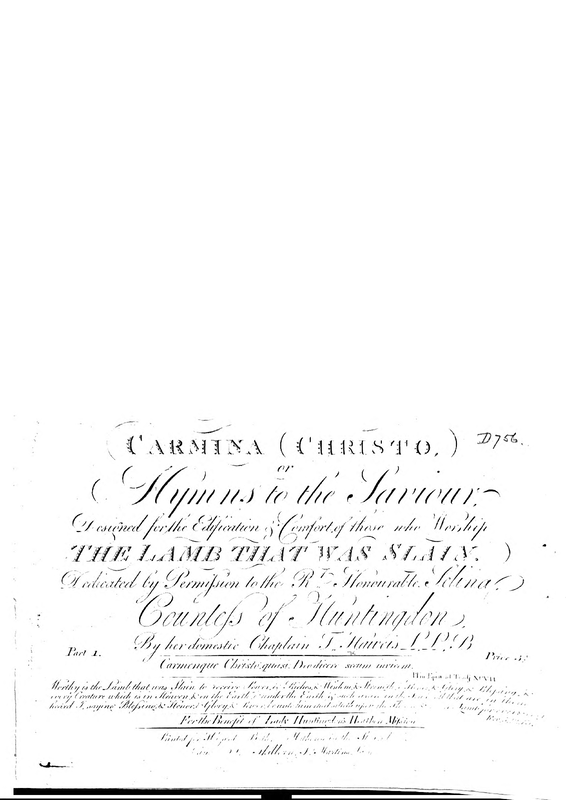 CARMINA CHRISTO,
D756.
or
Hymns to the Saviour,
Designed for the Edification & Comfort, of those who Worship
THE LAMB THAT WAS SLAIN.
Dedicated by Permission to the Rt. Honourable Selina
Countess of Huntingdon,
By her domestic Chaplain T. Haweis L.L.B
Part 1.
Price
Carmenque Christo, quasi Deo dicere secum invicem.
Worthy is the Lamb that was Slain to receive Power, & Riches, & Wisdom, & Strength, & Honor, & Glory, & Blessing, &
every Creature which is in Heaven & in the Earth & under the Earth & such as are in the Sea & all that are in them
heard I, saying Blessing, & Honor, & Glory, &
For the Benefit of Lady Huntingdon's Heathen Mission
Printed for